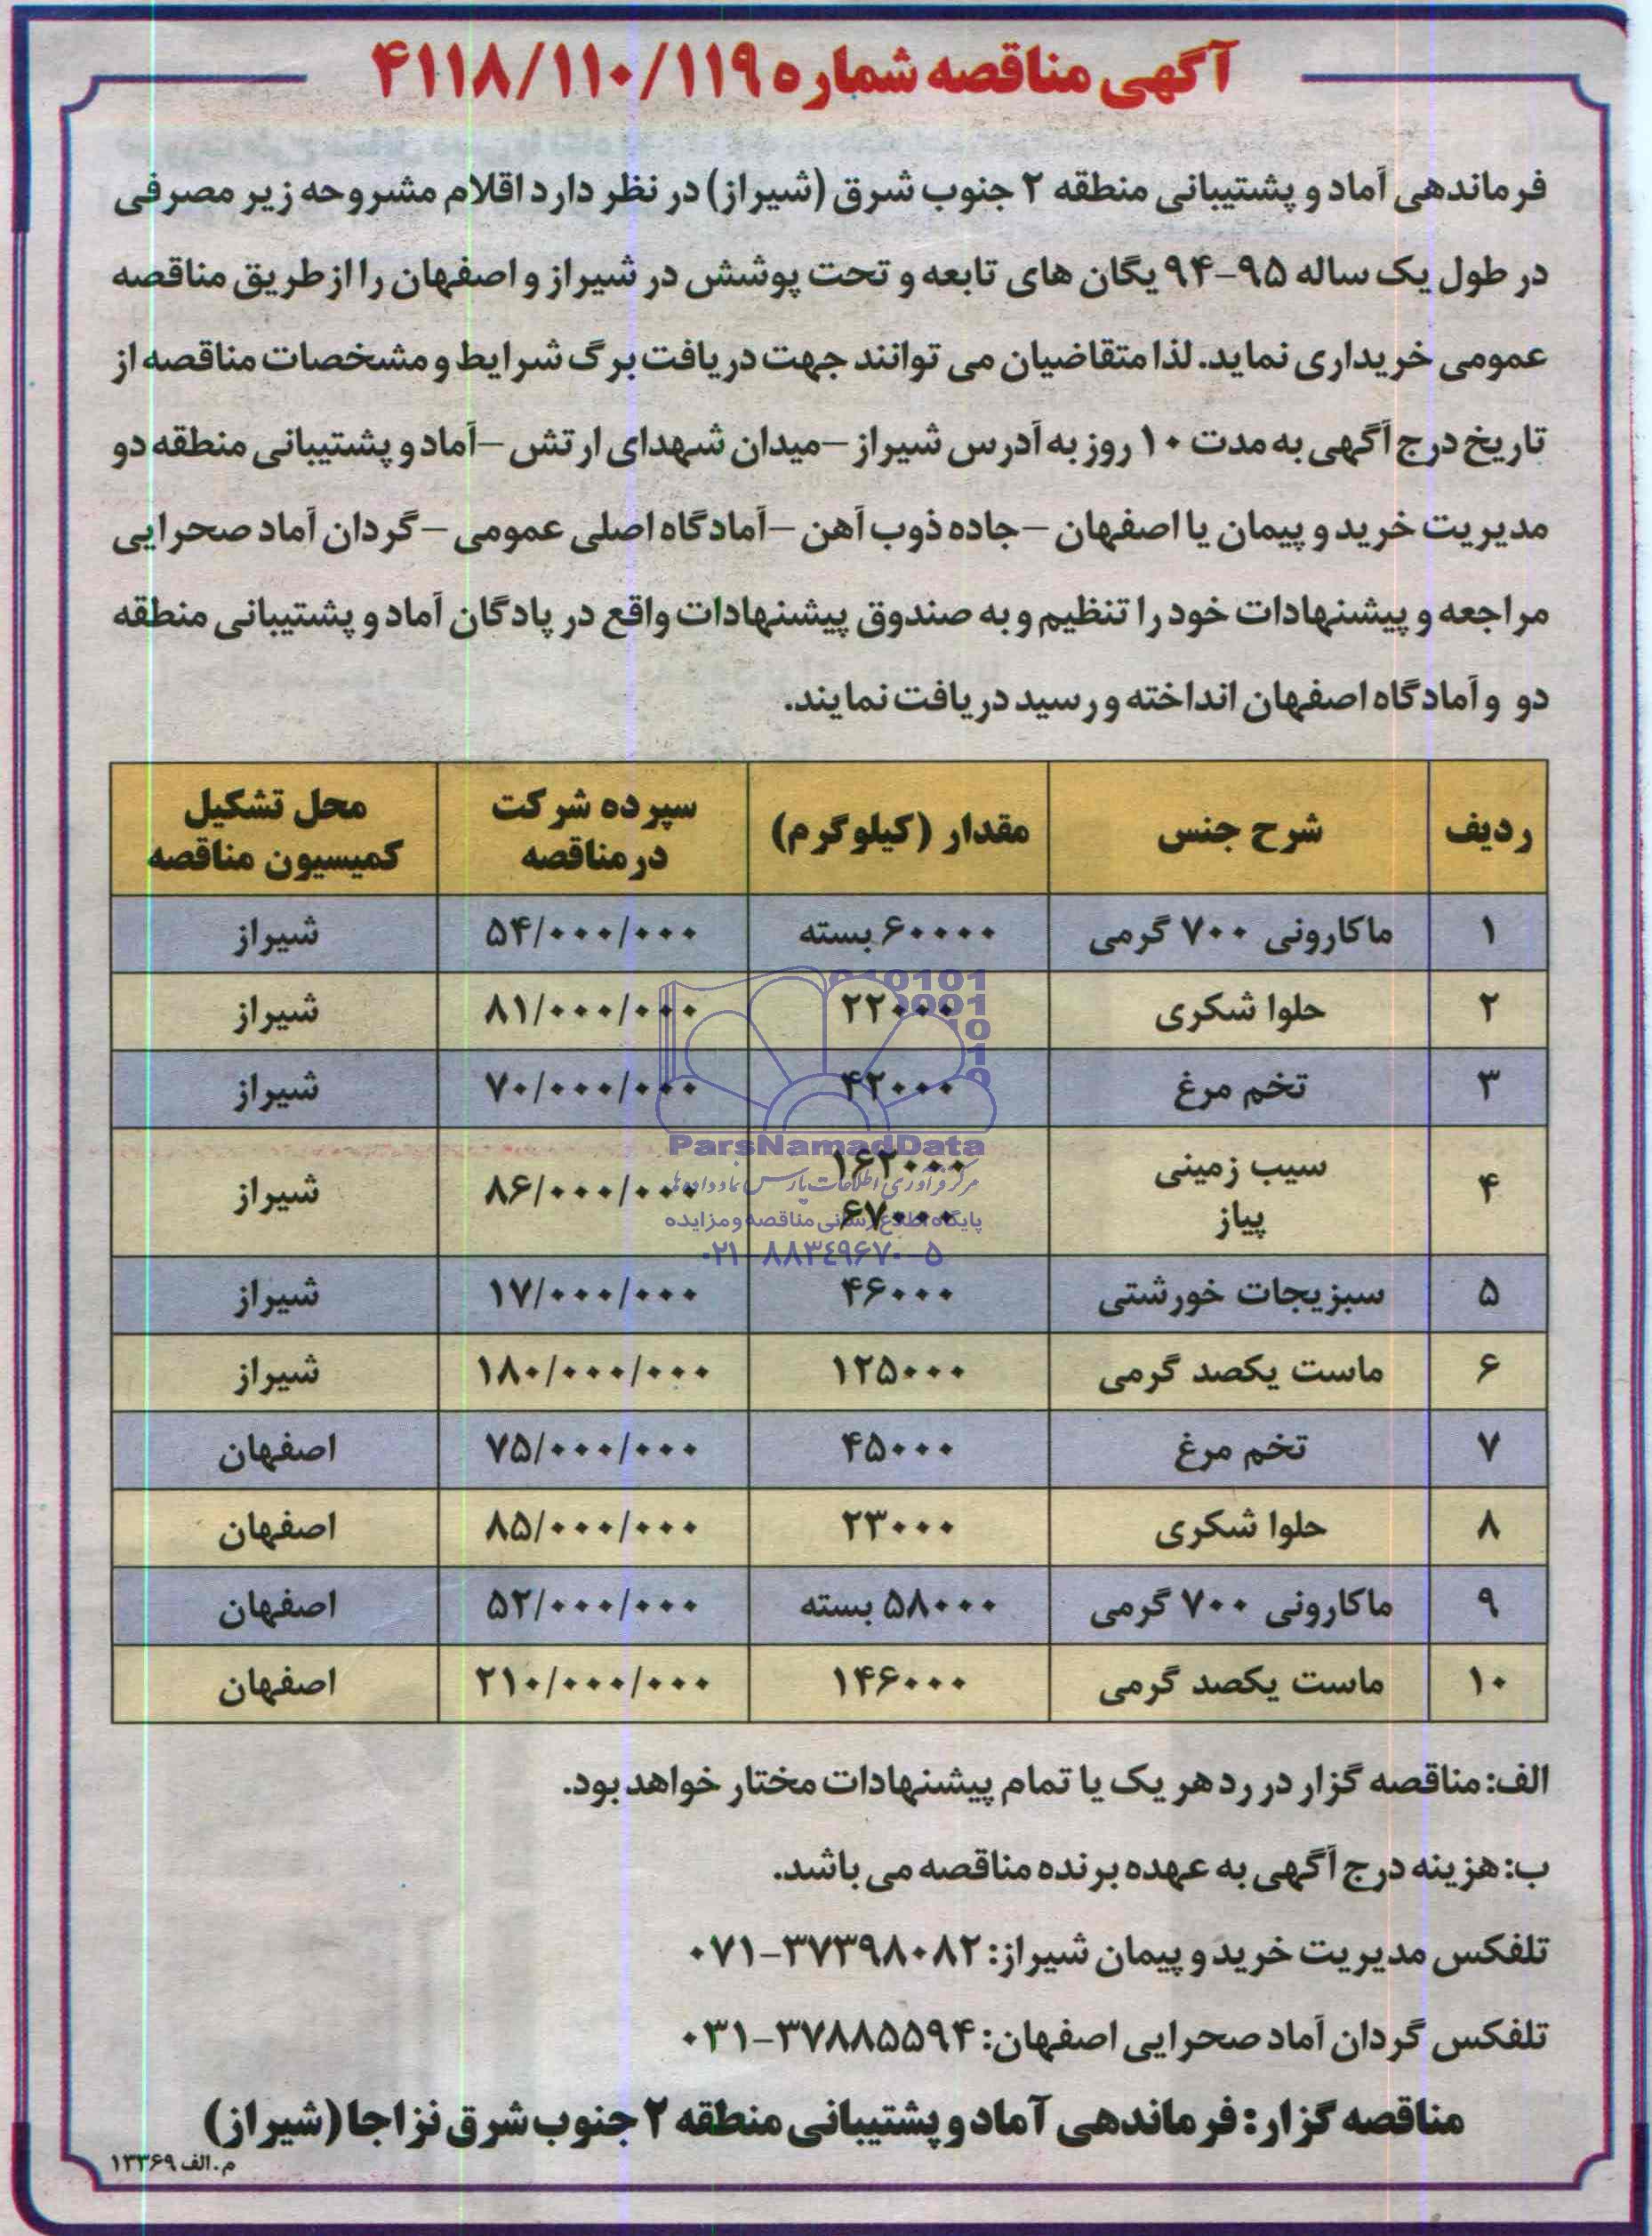 آگهی مناقصه شماره ۴۱۱۸/۱۱۰/۱۱۹
فرماندهی آماد و پشتیبانی منطقه ۲ جنوب شرق (شیراز) در نظر دارد اقلام مشروحه زیر مصرفی
در طول یک ساله ۹۵-۹۴ یگان های تابعه و تحت پوشش در شیراز و اصفهان را از طریق مناقصه
عمومی خریداری نماید. لذا متقاضیان می توانند جهت دریافت برگ شرایط و مشخصات مناقصه از
تاریخ درج آگهی به مدت ۱۰ روز به آدرس شیراز -میدان شهدای ارتش -آماد و پشتیبانی منطقه دو
مدیریت خرید و پیمان یا اصفهان -جاده ذوب آهن -آمادگاه اصلی عمومی -گردان آماد صحرایی
مراجعه و پیشنهادات خود را تنظیم و به صندوق پیشنهادات واقع در پادگان آماد و پشتیبانی منطقه
دو و آمادگاه اصفهان انداخته و رسید دریافت نمایند.
ردیف شرح جنس مقدار (کیلوگرم) سپرده شرکت در مناقصه محل تشکیل کمیسیون مناقصه
۱ ماکارونی ۷۰۰ گرمی ۶۰۰۰۰ بسته ۵۴/۰۰۰/۰۰۰ شیراز
۲ حلوا شکری ۲۲۰۰۰ ۸۱/۰۰۰/۰۰۰ شیراز
۳ تخم مرغ ۴۲۰۰۰ ۷۰/۰۰۰/۰۰۰ شیراز
۴ سیب زمینی پیاز ۱۶۲۰۰۰ ۶۷۰۰۰ ۸۶/۰۰۰/۰۰۰ شیراز
۵ سبزیجات خورشتی ۴۶۰۰۰ ۱۷/۰۰۰/۰۰۰ شیراز
۶ ماست یکصد گرمی ۱۲۵۰۰۰ ۱۸۰/۰۰۰/۰۰۰ شیراز
۷ تخم مرغ ۴۵۰۰۰ ۷۵/۰۰۰/۰۰۰ اصفهان
۸ حلوا شکری ۲۳۰۰۰ ۸۵/۰۰۰/۰۰۰ اصفهان
۹ ماکارونی ۷۰۰ گرمی ۵۸۰۰۰ بسته ۵۲/۰۰۰/۰۰۰ اصفهان
۱۰ ماست یکصد گرمی ۱۴۶۰۰۰ ۲۱۰/۰۰۰/۰۰۰ اصفهان
ParsNamadData
مرکز فرآوری اطلاعات پارس نماد داده ها
پایگاه اطلاع رسانی مناقصه و مزایده
۰۲۱-۸۸۳۴۹۶۷۰-۵
الف: مناقصه گزار در رد هر یک یا تمام پیشنهادات مختار خواهد بود.
ب: هزینه درج آگهی به عهده برنده مناقصه می باشد.
تلفکس مدیریت خرید و پیمان شیراز: ۳۷۳۹۸۰۸۲-۰۷۱
تلفکس گردان آماد صحرایی اصفهان: ۳۷۸۸۵۵۹۴-۰۳۱
مناقصه گزار: فرماندهی آماد و پشتیبانی منطقه ۲ جنوب شرق نزاجا (شیراز)
م.الف ۱۳۳۶۹